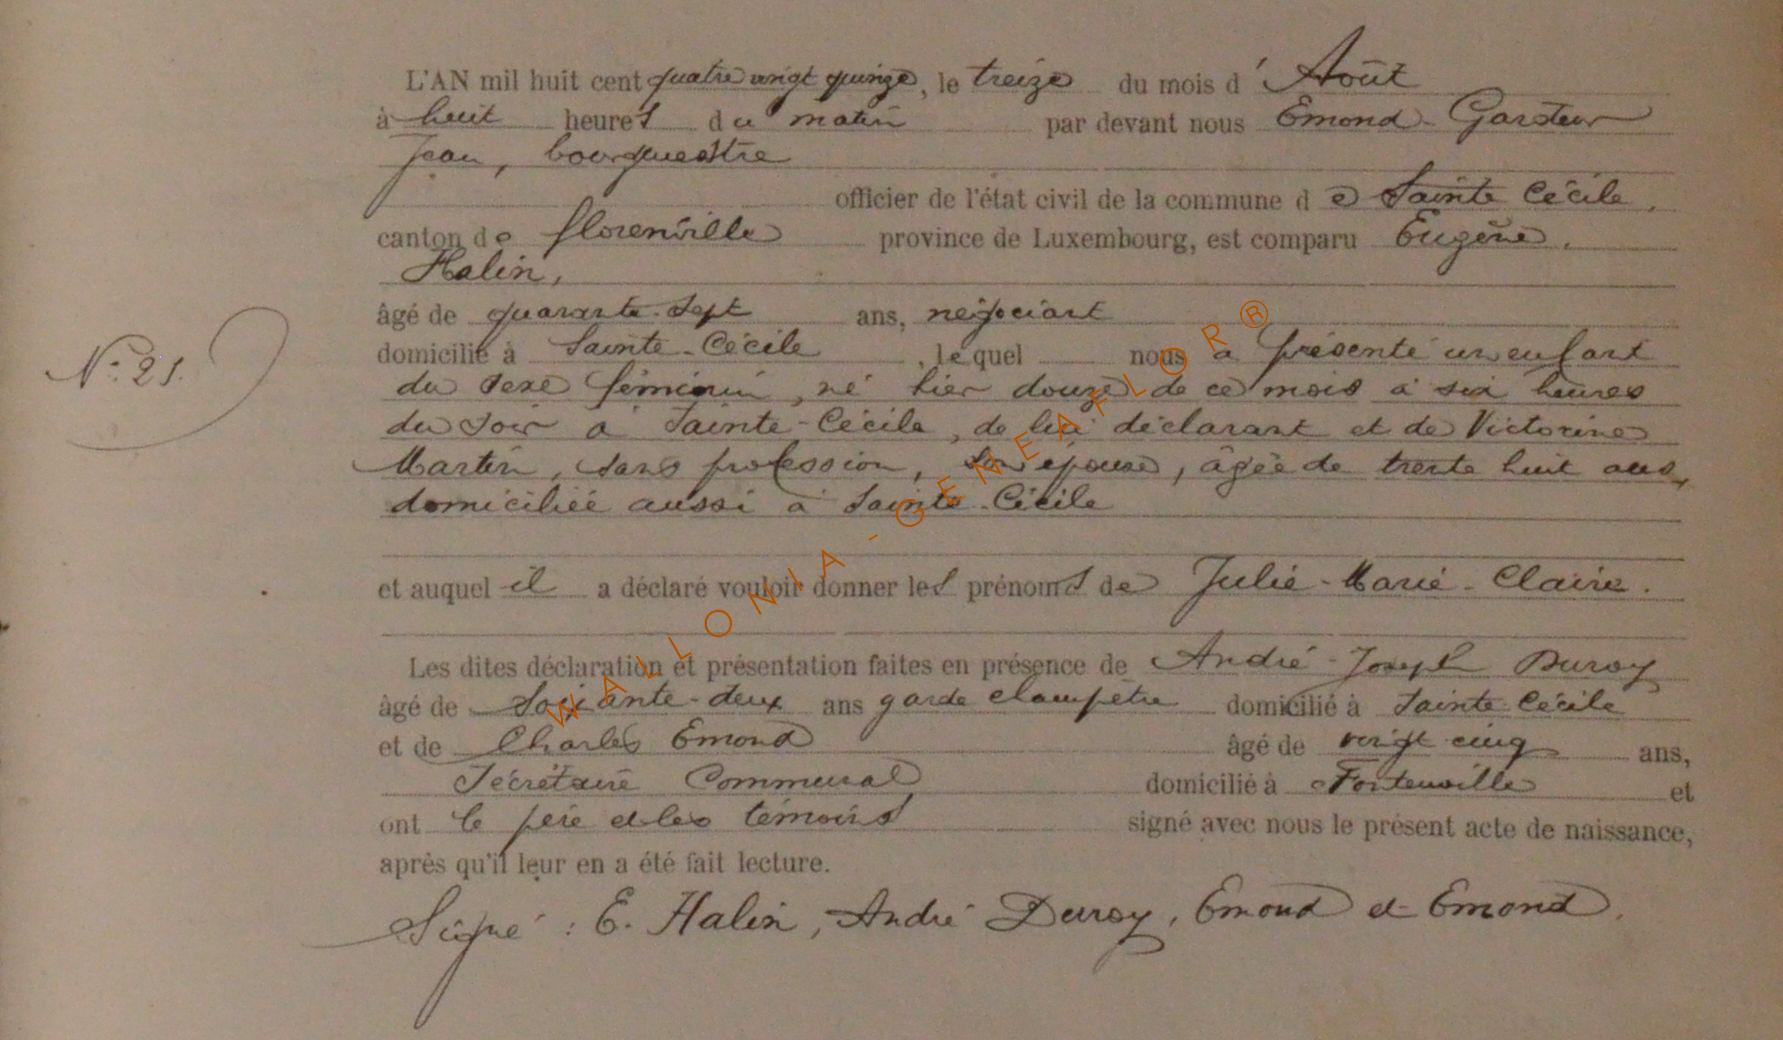 L'AN mil huit cent quatre vingt quinze, le treize du mois d'Août
à huit heures du matin par devant nous Emond
Jean, bourgmestre
officier de l'état civil de la commune de Sainte Cécile,
canton de Florenville province de Luxembourg, est comparu Eugène,
Halin,
âgé de quarante-sept ans, négociant
N° 21.
domicilié à Sainte-Cécile, lequel nous a présenté un enfant
du sexe féminin, né hier douze de ce mois à six heures
du soir à Sainte-Cécile, de lui déclarant et de Victorine
Martin, sans profession, son épouse, âgée de trente huit ans,
domiciliée aussi à Sainte-Cécile
et auquel il a déclaré vouloir donner les prénoms de Julie-Marie-Claire.
Les dites déclaration et présentation faites en présence de André-Joseph Duroy
âgé de Soixante-deux ans garde champêtre domicilié à Sainte Cécile
et de Charles Emond âgé de vingt cinq ans,
Secrétaire Communal domicilié à Fontenoille et
ont le père et les témoins signé avec nous le présent acte de naissance,
après qu'il leur en a été fait lecture.
Signé : E. Halin, André Duroy, Emond et Emond.
WALLONIA-GENEAFLOR®